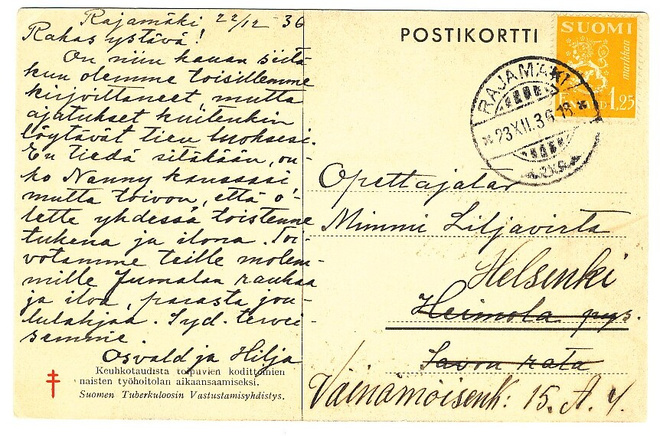 Rajamäki 22/12 - 36
Rakas ystävä!
On niin kauan siitä
kun olemme toisillemme
kirjoittaneet, mutta
ajatukset kuitenkin
löytävät tien luoksesi.
En tiedä sitäkään, on-
ko Nanny kanssasi
mutta toivon, että o-
lette yhdessä toistenne
tukena ja ilona. Toi-
votamme teille molem-
mille Jumalan rauhaa
ja iloa, parasta jou-
lulahjaa. Syd. tervei-
semme.
Osvald ja Hilja
Keuhkotaudista toipuvien kodittomien
naisten työhoitolan aikaansaamiseksi.
Suomen Tuberkuloosin Vastustamisyhdistys.
POSTIKORTTI
SUOMI
markkaa
1,25
RAJAMÄKI
23.XII.36.18
Opettajatar
Mimmi Liljavirta
Helsinki
Heimola pys.
Savon rata
Väinämöisenk: 15. A. 4.